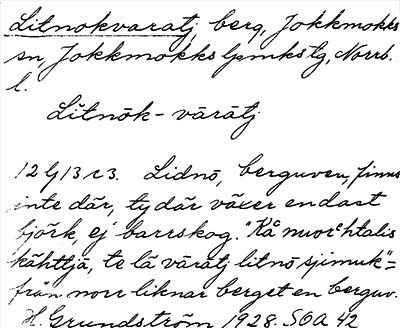 Litnokvaratj, berg, Jokkmokks
sn, Jokkmokks lpmkstg, Norrb.
l.
Litnōk-vārātj
12 G 13 r 3. Lidnō, berguven, finns
inte där, ty där växer endast
björk, ej barrskog. "Kå nuorᵉhtalis
kähttjā, te lä vāratj litnō sjimuk" =
från norr liknar berget en berguv.
H. Grundström 1928. SOA 42